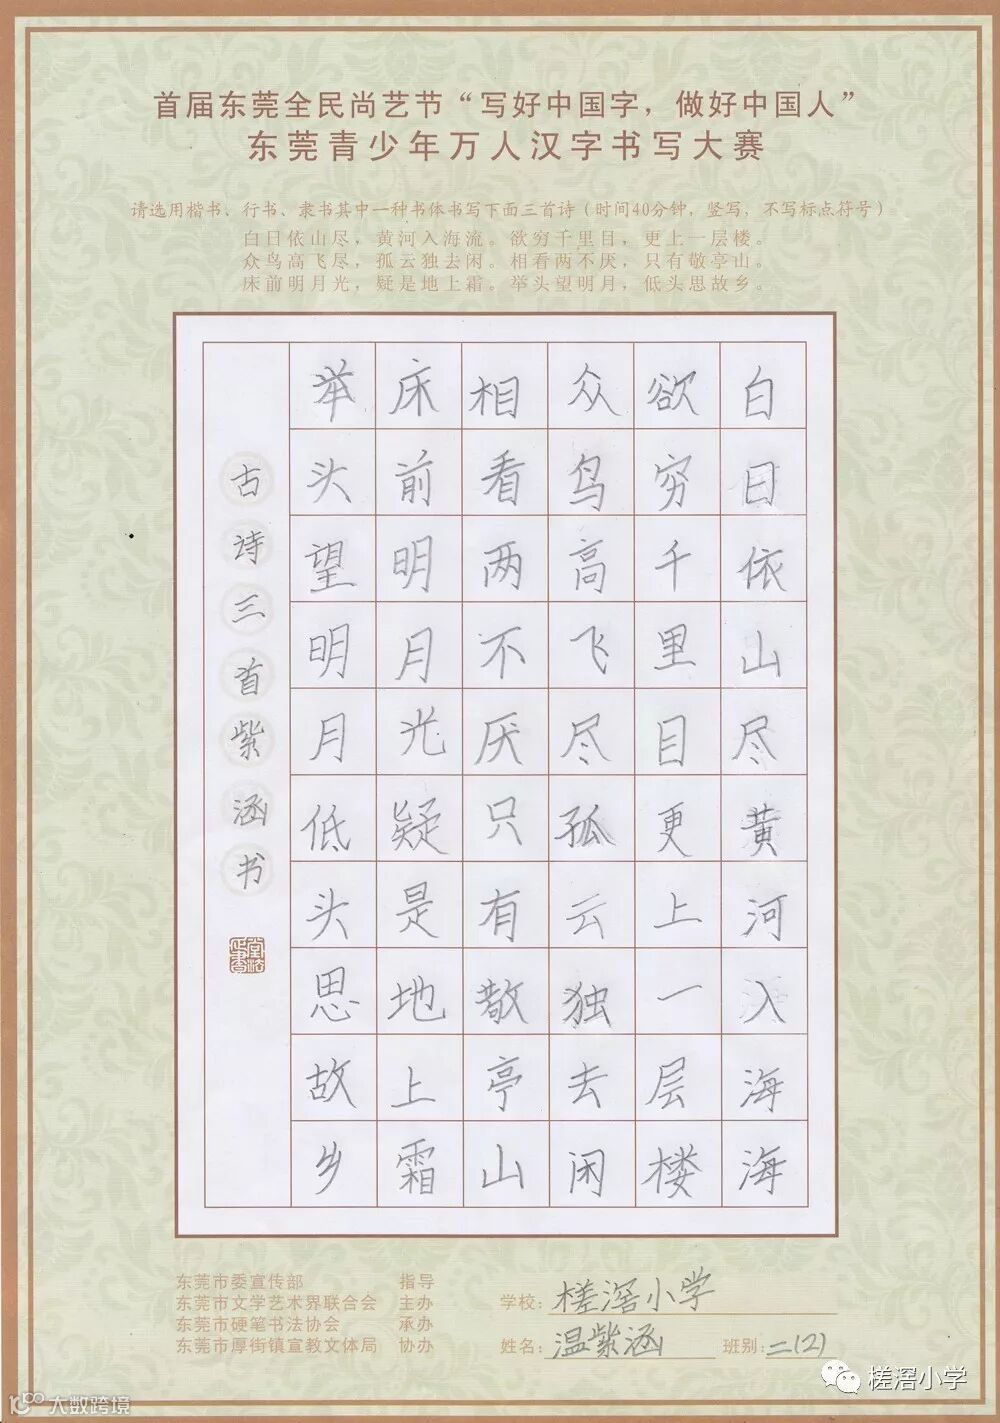 首届东莞全民尚艺节“写好中国字，做好中国人”
东莞青少年万人汉字书写大赛
请选用楷书、行书、隶书其中一种书体书写下面三首诗（时间40分钟，竖写，不写标点符号）
白日依山尽，黄河入海流。欲穷千里目，更上一层楼。
众鸟高飞尽，孤云独去闲。相看两不厌，只有敬亭山。
床前明月光，疑是地上霜。举头望明月，低头思故乡。
白日依山尽黄河入海海
欲穷千里目更上一层楼
众鸟高飞尽孤云独去闲
相看两不厌只有敬亭山
床前明月光疑是地上霜
举头望明月低头思故乡
古诗三首紫涵书
东莞市委宣传部 指导
东莞市文学艺术界联合会 主办
东莞市硬笔书法协会 承办
东莞市厚街镇宣教文体局 协办
学校：槎滘小学
姓名：温紫涵 班别：二(2)
槎滘小学
大数跨境